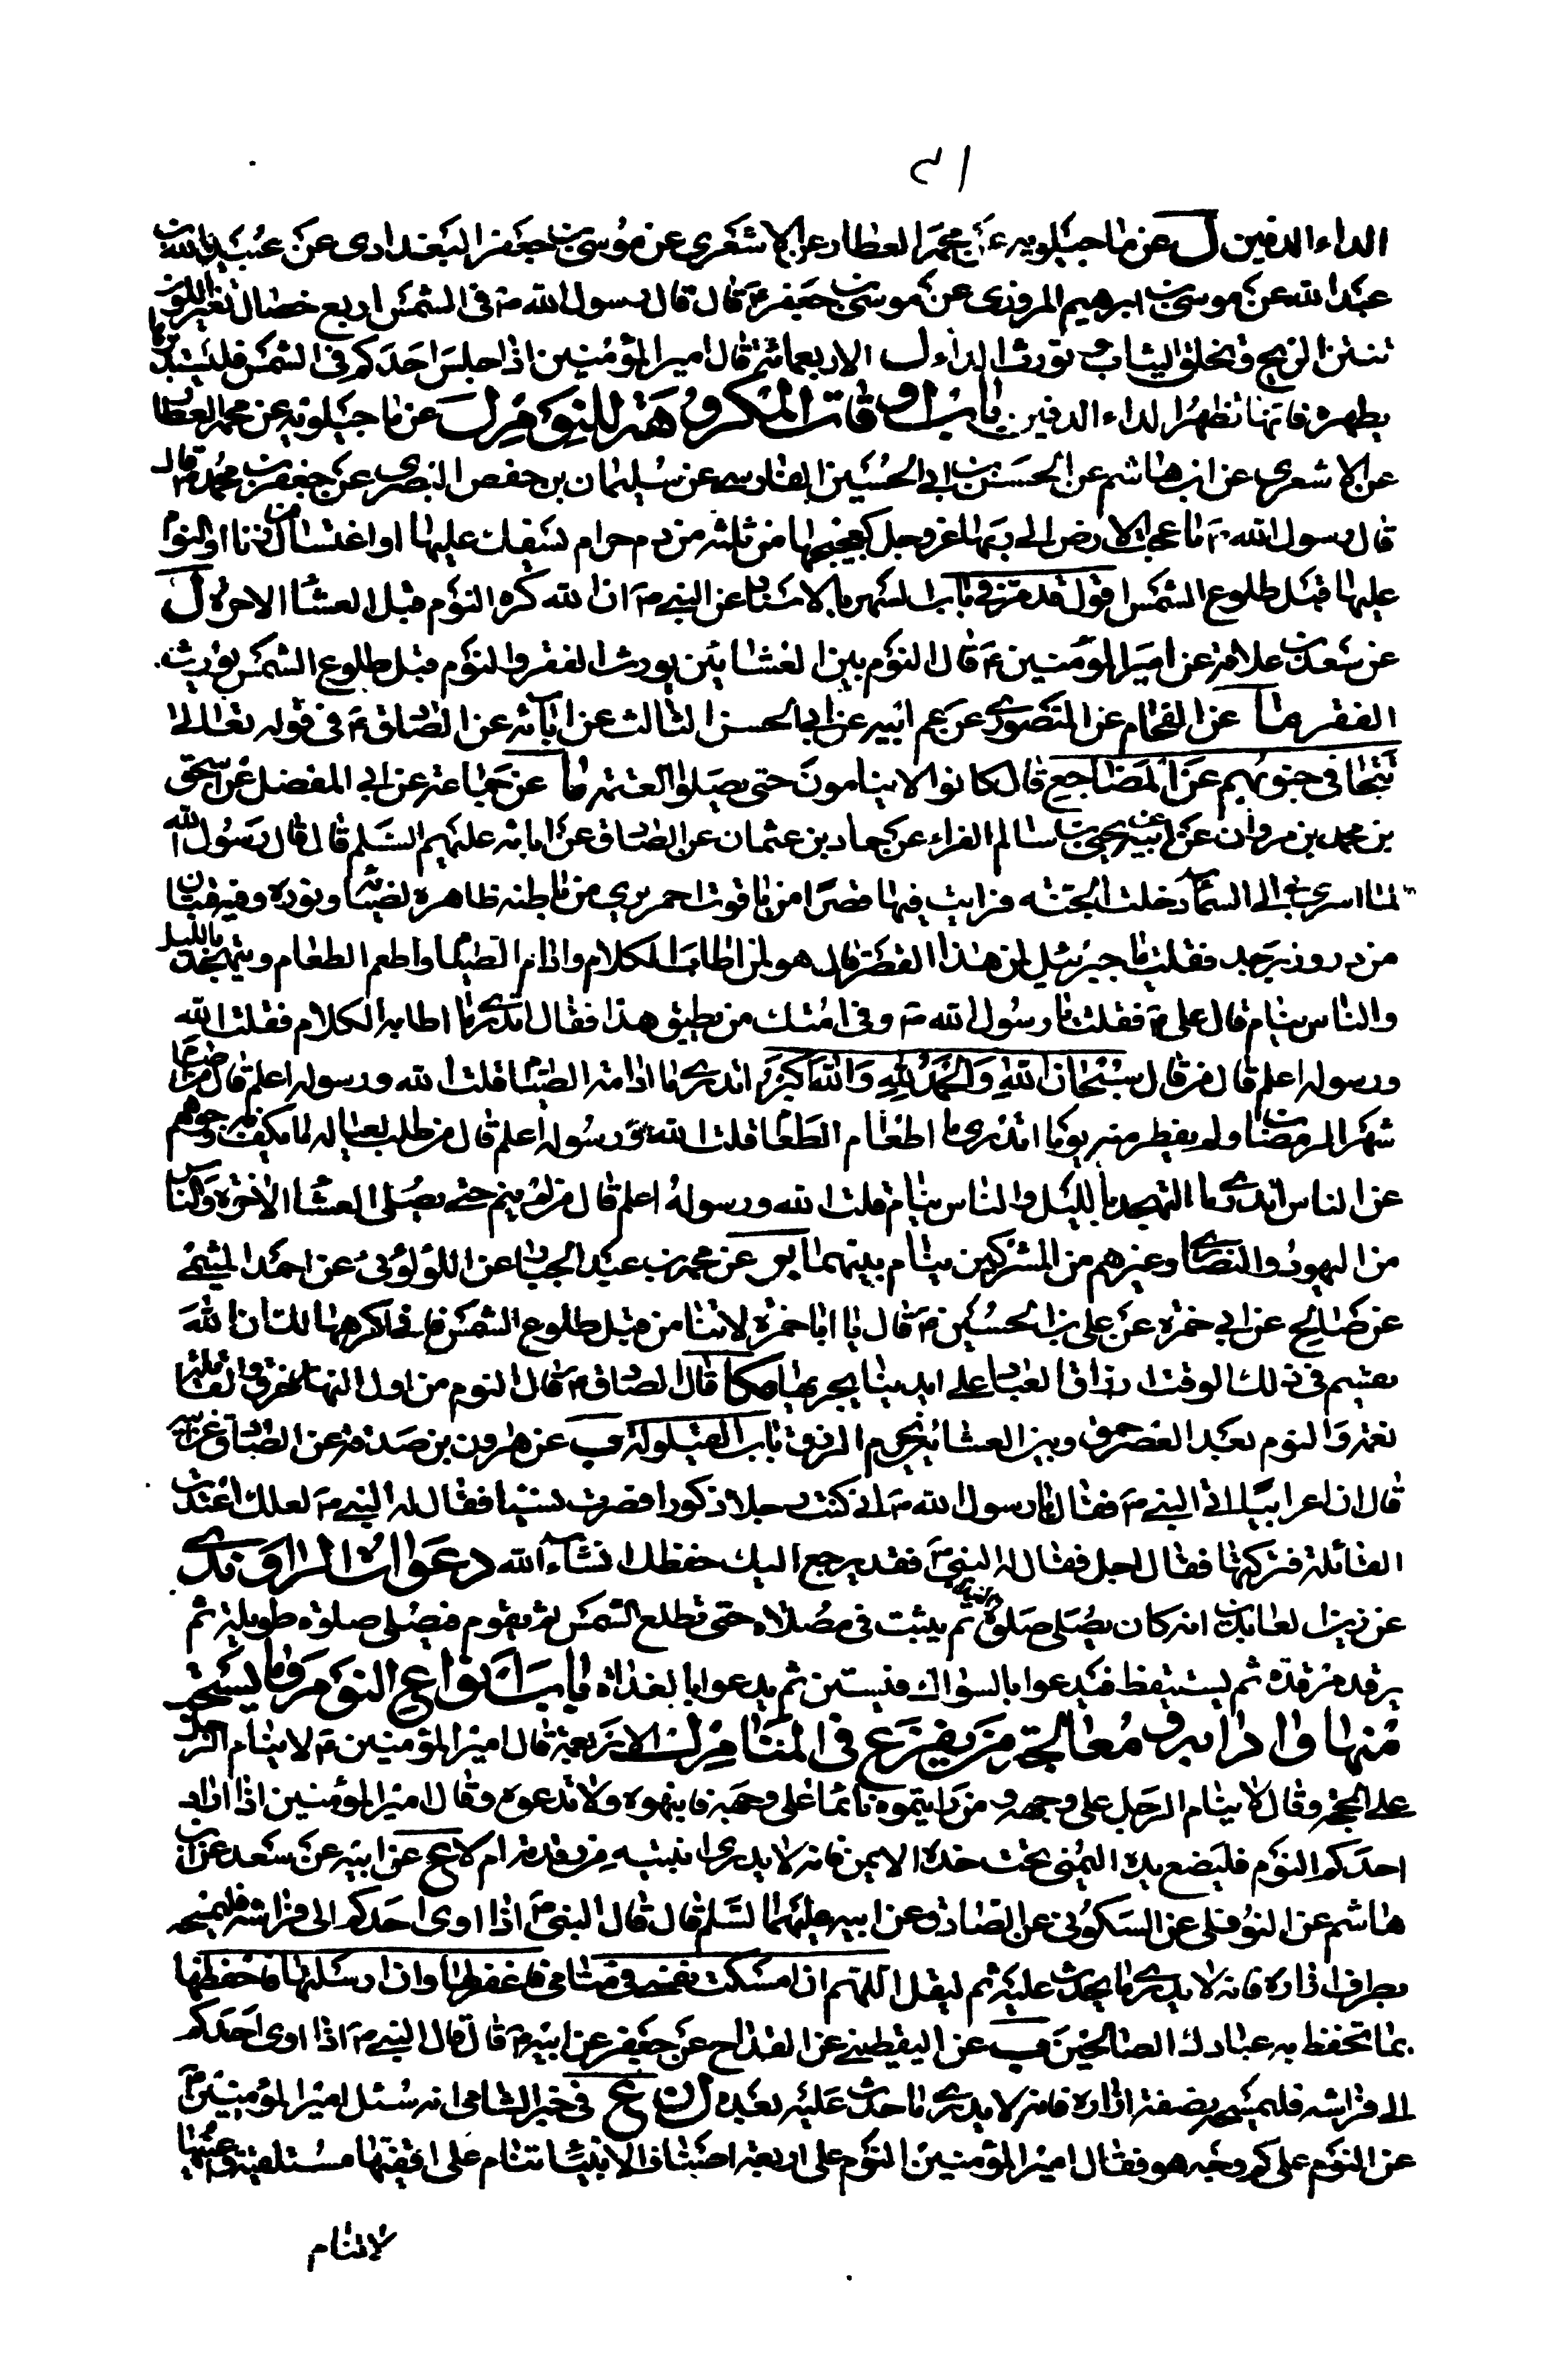 الداء الدفين ل عن ماجيلويه عن محمد العطار عن الاشعري عن موسى بن جعفر البغدادى عن عبيد الله بن
عبد الله عن موسى بن ابرهيم المروزى عن موسى بن جعفر ع قال قال رسول الله ص فى الشمس اربع خصال تغير اللون
تنتن الريح و تخلق الثياب و تورث الداء ل الاربعمائة قال امير المؤمنين اذا جلس احدكم فى الشمس فليستدبرها
بظهره فانها تظهر الداء الدفين باب اوقات المكروهة للنوم ل عن ماجيلويه عن محمد العطار
عن الاشعري عن ابن هاشم عن الحسن بن ابى الحسين الفارسى عن سليمان بن حفص البصرى عن جعفر بن محمد ع قال
قال رسول الله ص ما عجت الارض الى ربها عز و جل كعجيجها من ثلثة من دم حرام يسفك عليها او اغتسال من زنا او النوم
عليها قبل طلوع الشمس اقول قد مر فى باب السهر بالاسناد عن النبى ص ان الله كره النوم قبل العشاء الاخرة ل
عن سعد بن علاقة عن امير المؤمنين ع قال النوم بين العشائين يورث الفقر و النوم قبل طلوع الشمس يورث
الفقر ما عن الفحام عن المنصورى عن عم ابيه عن ابى الحسن الثالث عن ابائه عن الصادق ع فى قوله تعالى
تتجافى جنوبهم عن المضاجع قال كانوا لا ينامون حتى يصلوا العتمة ما عن جماعة عن ابى المفضل عن اسحق
بن محمد بن مروان عن ابيه عن يحيى بن سالم الفراء عن حماد بن عثمان عن الصادق عن ابائه عليهم السلم قال قال رسول الله
ص لما اسرى بى الى السماء دخلت الجنة فرايت فيها قصرا من ياقوت احمر يرى من باطنه ظاهره لضيائه و نوره و فيه قبتان
من در و زبرجد فقلت يا جبرئيل لمن هذا القصر قال هو لمن اطاب الكلام و ادام الصيام و اطعم الطعام و تهجد بالليل
و الناس نيام قال على ع فقلت يا رسول الله ص و فى امتك من يطيق هذا فقال اتدرى ما اطابة الكلام فقلت الله
و رسوله اعلم قال من قال سبحان الله و الحمد لله و الله اكبر اتدرى ما ادامة الصيام قلت الله و رسوله اعلم قال من صام
شهر رمضان و لم يفطر منه يوما اتدرى ما اطعام الطعام قلت الله و رسوله اعلم قال من طلب لعياله ما يكف به وجوههم
عن الناس اتدرى ما التهجد بالليل و الناس نيام قلت الله و رسوله اعلم قال من لم ينم حتى يصلى العشاء الاخرة و الناس
من اليهود و النصارى و غيرهم من المشركين نيام بينهما ير عن محمد بن عبد الجبار عن اللؤلؤى عن احمد الميثمى
عن صالح عن ابى حمزة عن على بن الحسين ع قال يا ابا حمزة لا تنامن قبل طلوع الشمس فانى اكرهها لك ان الله
يقسم فى ذلك الوقت ارزاق العباد على ايدينا يجريها مكا قال الصادق ع قال النوم من اول النهار خرق و القائلة
نعمة و النوم بعد العصر حمق و بين العشائين يحرم الرزق باب القيلولة ب عن هرون بن صدقة عن الصادق عن ابيه
قال ان اعرابيا اتى النبى ص فقال يا رسول الله ص انى كنت رجلا ذكورا فصرت نسيا فقال له النبى ص لعلك اعتدت
القائلة فتركتها فقال اجل فقال له النبى ص فقد يرجع اليك حفظك انشاء الله دعوات الراوندى
عن زين العابدين انه كان يصلى صلوة الغداة ثم يثبت فى مصلاه حتى تطلع الشمس ثم يقوم فيصلى صلوة طويلة ثم
يرقد رقدة ثم يستيقظ فيدعوا بالسواك فيستن ثم يدعوا بالغداة باب انواع النوم و ما يستحب
منها و ادابه و معالجة من يفزع فى المنام ل الاربعمائة قال امير المؤمنين ع لا ينام الرجل
على المحجة و قال لا ينام الرجل على وجهه و من رايتموه نائما على وجهه فانبهوه و لا تدعوه و قال امير المؤمنين اذا اراد
احدكم النوم فليضع يده اليمنى تحت خده الايمن فانه لا يدرى اينتبه من رقدته ام لا ع عن ابيه عن سعد عن ابن
هاشم عن النوفلى عن السكونى عن الصادق عن ابيه عليهما السلم قال قال النبى ص اذا اوى احدكم الى فراشه فليمسحه
بطرف ازاره فانه لا يدرى ما يحدث عليه ثم ليقل اللهم ان امسكت نفسى فى منامى فاغفر لها و ان ارسلتها فاحفظها
بما تحفظ به عبادك الصالحين ب عن اليقطينى عن القداح عن جعفر عن ابيه ع قال قال النبى ص اذا اوى احدكم
الى فراشه فليمسحه بصنفة ازاره فانه لا يدرى ما حدث عليه بعده ل ن ع فى خبر الشامى انه سئل امير المؤمنين ع
عن النوم على كم وجه هو فقال امير المؤمنين النوم على اربعة اصناف الانبياء تنام على اقفيتها مستلقية و اعينها
لا تنام